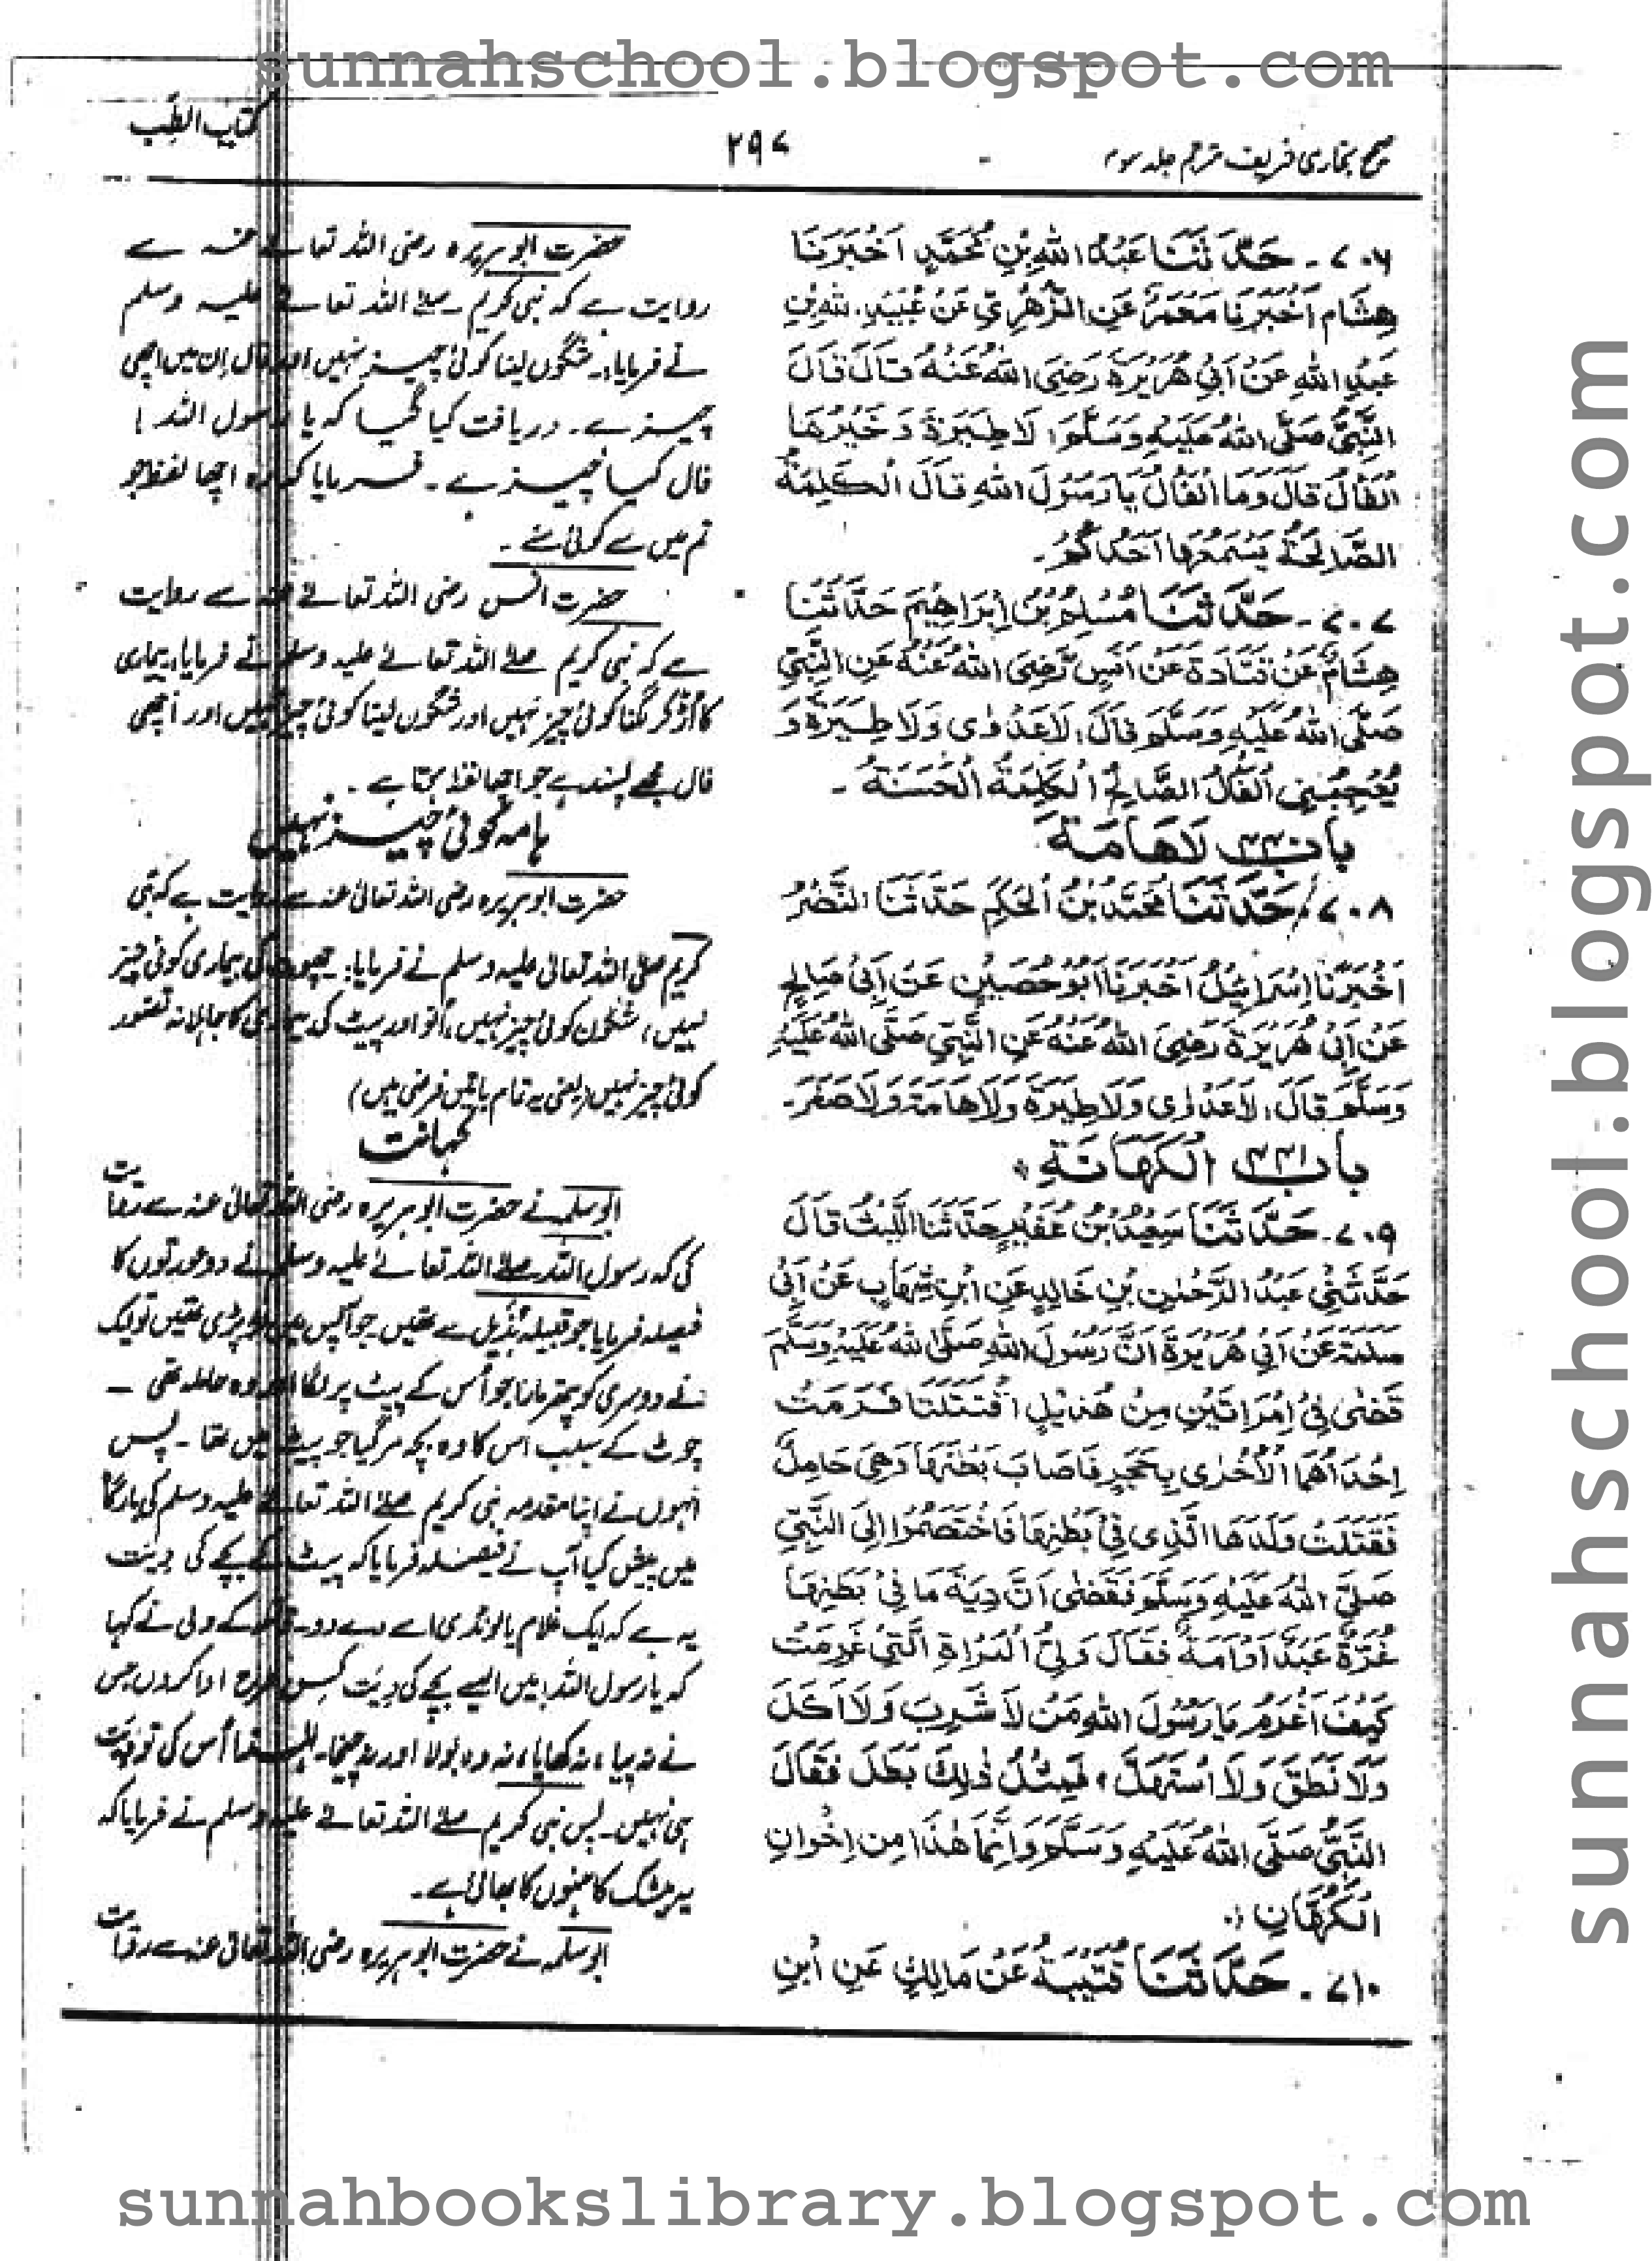 sunnahschool.blogspot.com
صحیح بخاری شریف مترجم جلد سوم
۲۹۷
کتاب الطب
۷۰۶۔ حَدَّثَنَا عَبْدُ اللهِ بْنُ مُحَمَّدٍ اَخْبَرَنَا
هِشَامٌ اَخْبَرَنَا مَعْمَرٌ عَنِ الزُّهْرِيِّ عَنْ عُبَيْدِ اللهِ بْنِ
عَبْدِ اللهِ عَنْ اَبِيْ هُرَيْرَةَ رَضِيَ اللهُ عَنْهُ قَالَ قَالَ
النَّبِيُّ صَلَّى اللهُ عَلَيْهِ وَسَلَّمَ: لَا طِيَرَةَ وَخَيْرُهَا
الْفَالُ قَالَ وَمَا الْفَالُ يَا رَسُوْلَ اللهِ قَالَ الْكَلِمَةُ
الصَّالِحَةُ يَسْمَعُهَا اَحَدُكُمْ۔
۷۰۷۔ حَدَّثَنَا مُسْلِمُ بْنُ اِبْرَاهِيْمَ حَدَّثَنَا
هِشَامٌ عَنْ قَتَادَةَ عَنْ اَنَسٍ رَّضِيَ اللهُ عَنْهُ عَنِ النَّبِيِّ
صَلَّى اللهُ عَلَيْهِ وَسَلَّمَ قَالَ: لَا عَدْوٰى وَلَا طِيَرَةَ وَ
يُعْجِبُنِي الْفَالُ الصَّالِحُ الْكَلِمَةُ الْحَسَنَةُ ۔
بَابُ ۴۴۰ لَا هَامَةَ
۷۰۸۔ حَدَّثَنَا مُحَمَّدُ بْنُ الْحَكَمِ حَدَّثَنَا النَّضْرُ
اَخْبَرَنَا اِسْرَائِيْلُ اَخْبَرَنَا اَبُوْ حُصَيْنٍ عَنْ اَبِيْ صَالِحٍ
عَنْ اَبِيْ هُرَيْرَةَ رَضِيَ اللهُ عَنْهُ عَنِ النَّبِيِّ صَلَّى اللهُ عَلَيْهِ
وَسَلَّمَ قَالَ: لَا عَدْوٰى وَلَا طِيَرَةَ وَلَا هَامَةَ وَلَا صَفَرَ۔
بَابُ ۴۴۱ الْكَهَانَةِ
۷۰۹۔ حَدَّثَنَا سَعِيْدُ بْنُ عُفَيْرٍ حَدَّثَنَا اللَّيْثُ قَالَ
حَدَّثَنِيْ عَبْدُ الرَّحْمٰنِ بْنُ خَالِدٍ عَنِ ابْنِ شِهَابٍ عَنْ اَبِيْ
سَلَمَةَ عَنْ اَبِيْ هُرَيْرَةَ اَنَّ رَسُوْلَ اللهِ صَلَّى اللهُ عَلَيْهِ وَسَلَّمَ
قَضٰى فِيْ اِمْرَاَتَيْنِ مِنْ هُذَيْلٍ اقْتَتَلَتَا فَرَمَتْ
اِحْدَاهُمَا الْاُخْرٰى بِحَجَرٍ فَاَصَابَ بَطْنَهَا وَهِيَ حَامِلٌ
فَقَتَلَتْ وَلَدَهَا الَّذِيْ فِيْ بَطْنِهَا فَاخْتَصَمُوْا اِلَى النَّبِيِّ
صَلَّى اللهُ عَلَيْهِ وَسَلَّمَ فَقَضٰى اَنَّ دِيَةَ مَا فِيْ بَطْنِهَا
غُرَّةٌ عَبْدٌ اَوْ اَمَةٌ فَقَالَ وَلِيُّ الْمَرْاَةِ الَّتِيْ غَرِمَتْ
كَيْفَ اَغْرَمُ يَا رَسُوْلَ اللهِ مَنْ لَا شَرِبَ وَلَا اَكَلَ
وَلَا نَطَقَ وَلَا اسْتَهَلَّ، فَمِثْلُ ذٰلِكَ بَطَلَ فَقَالَ
النَّبِيُّ صَلَّى اللهُ عَلَيْهِ وَسَلَّمَ وَاِنَّمَا هٰذَا مِنْ اِخْوَانِ
الْكُهَّانِ ۔
۷۱۰۔ حَدَّثَنَا قُتَيْبَةُ عَنْ مَالِكٍ عَنِ ابْنِ
حضرت ابوہریرہ رضی اللہ تعالےٰ عنہ سے
روایت ہے کہ نبی کریم صلے اللہ تعالےٰ علیہ وسلم
نے فرمایا:۔ شگون لینا کوئی چیز نہیں اور فال ان میں اچھی
چیز ہے۔ دریافت کیا گیا کہ یا رسول اللہ!
فال کیا چیز ہے۔ فرمایا کہ وہ اچھا لفظ جو
تم میں سے کوئی سنے ۔
حضرت انس رضی اللہ تعالےٰ عنہ سے روایت
ہے کہ نبی کریم صلے اللہ تعالےٰ علیہ وسلم نے فرمایا: بیماری
کا اُڑ کر لگنا کوئی چیز نہیں اور شگون لینا کوئی چیز نہیں اور اچھی
فال مجھے پسند ہے جو اچھا لفظ ہوتا ہے ۔
ہامہ کوئی چیز نہیں
حضرت ابوہریرہ رضی اللہ تعالیٰ عنہ سے روایت ہے کہ نبی
کریم صلی اللہ تعالیٰ علیہ وسلم نے فرمایا:۔ چھوت کی بیماری کوئی چیز
نہیں، شگون کوئی چیز نہیں، اُلو اور پیٹ کی بیماری کا جاہلانہ تصور
کوئی چیز نہیں (یعنی یہ تمام باتیں فرضی ہیں)
کہانت
ابوسلمہ نے حضرت ابوہریرہ رضی اللہ تعالیٰ عنہ سے روایت
کی کہ رسول اللہ صلے اللہ تعالےٰ علیہ وسلم نے دو عورتوں کا
فیصلہ فرمایا جو قبیلہ ہُذیل سے تھیں جو آپس میں لڑ پڑی تھیں تو ایک
نے دوسری کو پتھر مارا جو اُس کے پیٹ پر لگا اور وہ حاملہ تھی ۔
چوٹ کے سبب اس کا وہ بچہ مر گیا جو پیٹ میں تھا ۔ پس
انہوں نے اپنا مقدمہ نبی کریم صلے اللہ تعالےٰ علیہ وسلم کی بارگاہ
میں پیش کیا آپ نے فیصلہ فرمایا کہ پیٹ کے بچے کی دیت
یہ ہے کہ ایک غلام یا لونڈی اسے دے دو۔ کے ولی نے کہا
کہ یا رسول اللہ! میں ایسے بچے کی دیت کس طرح ادا کروں جس
نے نہ پیا، نہ کھایا، نہ وہ بولا اور نہ چیخا۔ لہٰذا اُس کی تو دیت
ہی نہیں۔ پس نبی کریم صلے اللہ تعالےٰ علیہ وسلم نے فرمایا کہ
یہ بیشک کاہنوں کا بھائی ہے۔
ابوسلمہ نے حضرت ابوہریرہ رضی اللہ تعالیٰ عنہ سے روایت
sunnahschool.blogspot.com
sunnahbookslibrary.blogspot.com